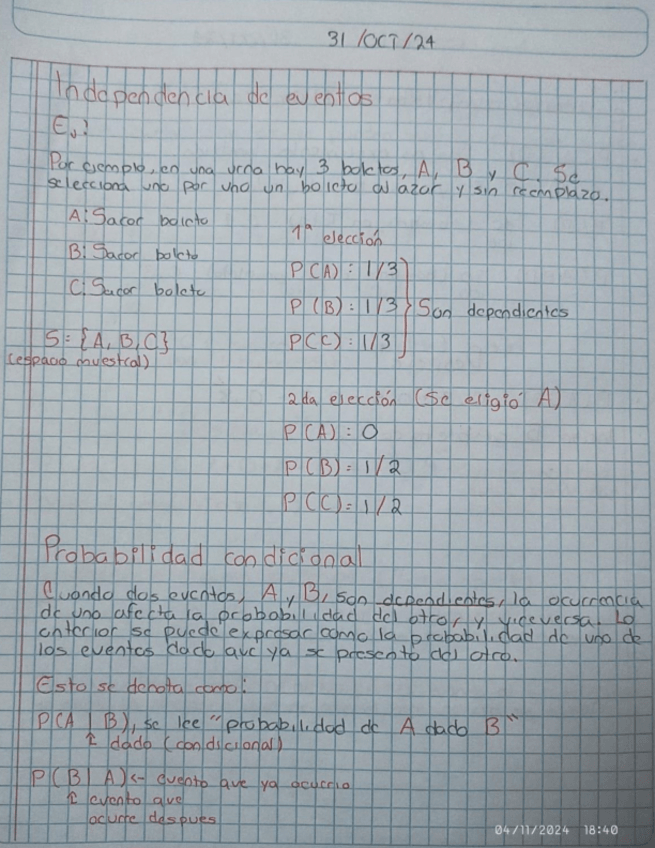 31 /OCT/24
Independencia de eventos
Ej:
Por ejemplo, en una urna hay 3 boletos, A, B y C. Se
selecciona uno por uno un boleto al azar y sin reemplazo.
A: Sacar boleto
B: Sacar boleto
C: Sacar boleto
S= {A, B, C}
(espacio muestral)
1ª elección
P(A): 1/3
P(B): 1/3
P(C): 1/3
Son dependientes
2da elección (Se eligió A)
P(A): 0
P(B)= 1/2
P(C)= 1/2
Probabilidad condicional
Cuando dos eventos, A y B, son dependientes, la ocurrencia
de uno afecta la probabilidad del otro, y viceversa. Lo
anterior se puede expresar como la probabilidad de uno de
los eventos dado que ya se presentó del otro.
Esto se denota como:
P(A | B), se lee "probabilidad de A dado B"
↑ dado (condicional)
P(B | A) <- evento que ya ocurrio
↑ evento que
ocurre despues
04/11/2024 18:40